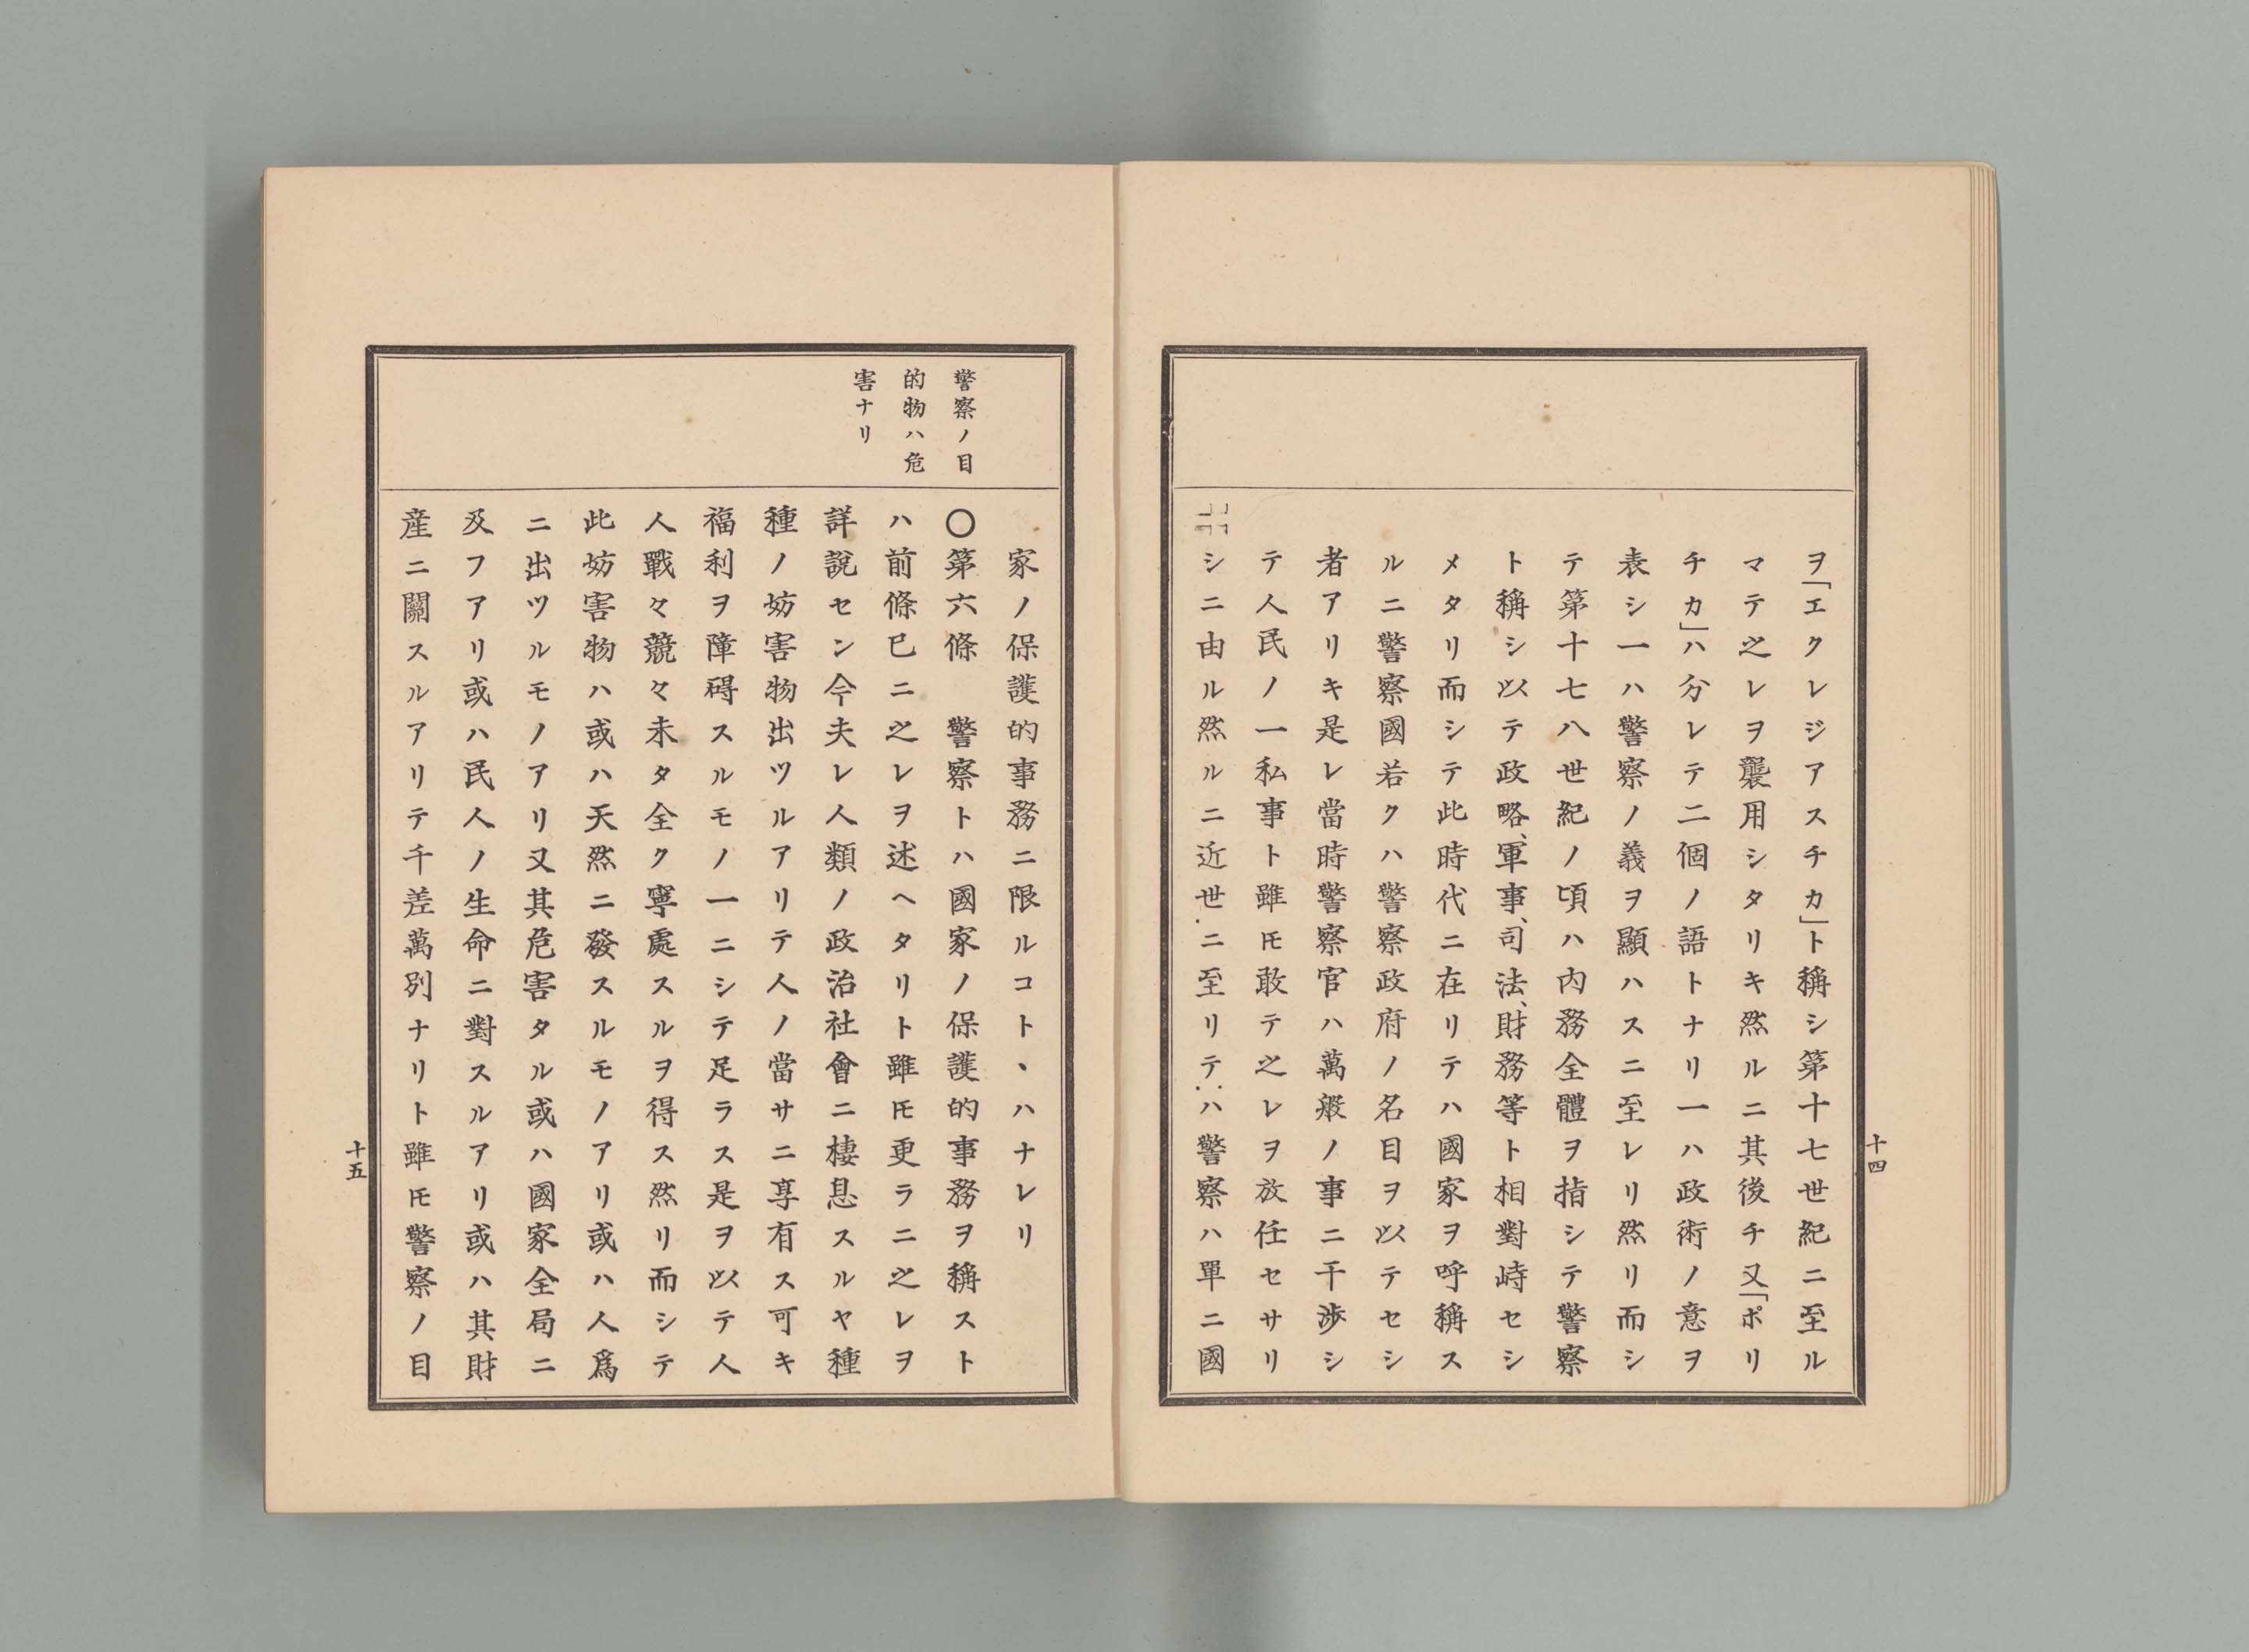 ヲ「エクレジアスチカ」ト稱シ第十七世紀ニ至ル
マテ之レヲ襲用シタリキ然ルニ其後チ又「ポリ
チカ」ハ分レテ二個ノ語トナリ一ハ政術ノ意ヲ
表シ一ハ警察ノ義ヲ顯ハスニ至レリ然リ而シ
テ第十七八世紀ノ頃ハ內務全體ヲ指シテ警察
ト稱シ以テ政略、軍事、司法、財務等ト相對峙セシ
メタリ而シテ此時代ニ在リテハ國家ヲ呼稱ス
ルニ警察國若クハ警察政府ノ名目ヲ以テセシ
者アリキ是レ當時警察官ハ萬般ノ事ニ干渉シ
テ人民ノ一私事ト雖𪜈敢テ之レヲ放任セサリ
シニ由ル然ルニ近世ニ至リテハ警察ハ單ニ國
十四
警察ノ目
的物ハ危
害ナリ
家ノ保護的事務ニ限ルコトヽハナレリ
〇第六條　警察トハ國家ノ保護的事務ヲ稱スト
ハ前條已ニ之レヲ述ヘタリト雖𪜈更ラニ之レヲ
詳說セン今夫レ人類ノ政治社會ニ棲息スルヤ種
種ノ妨害物出ツルアリテ人ノ當サニ享有ス可キ
福利ヲ障碍スルモノ一ニシテ足ラス是ヲ以テ人
人戰々競々未タ全ク寧處スルヲ得ス然リ而シテ
此妨害物ハ或ハ天然ニ發スルモノアリ或ハ人爲
ニ出ツルモノアリ又其危害タル或ハ國家全局ニ
及フアリ或ハ民人ノ生命ニ對スルアリ或ハ其財
産ニ關スルアリテ千差萬別ナリト雖𪜈警察ノ目
十五